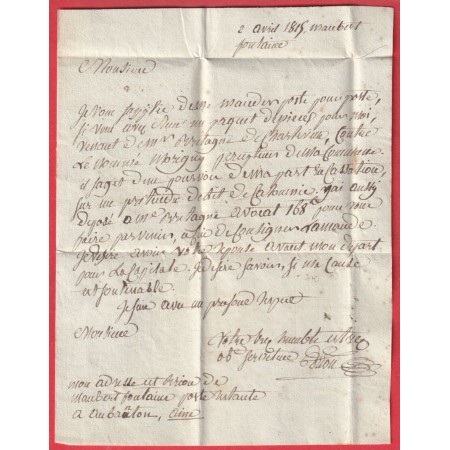 2 avril 1815, maubert
fontaine
Monsieur
Je vous supplie de me mander poste pour poste,
si vous avez reçu un paquet de pieces pour moi,
venant de mr. Bretagne de Charleville, Contre
Le nommé percepteur de ma Commune
il s'agit d'un pourvoi de ma part en Cassation,
sur un pretendu delit de Calomnie. j'ai aussi
deposé a mr. Bretagne avocat 168 pour vous
faire parvenir, afin de Consigner L'amande.
je desire avoir votre reponse avant mon depart
pour La Capitale. je desire savoir, si ma Cause
est soutenable.
Je suis avec un profond respect
Monsieur
Votre tres humble et tres
obt. serviteur
mon adresse est de
maubert fontaine poste restante
a aubanton, aisne